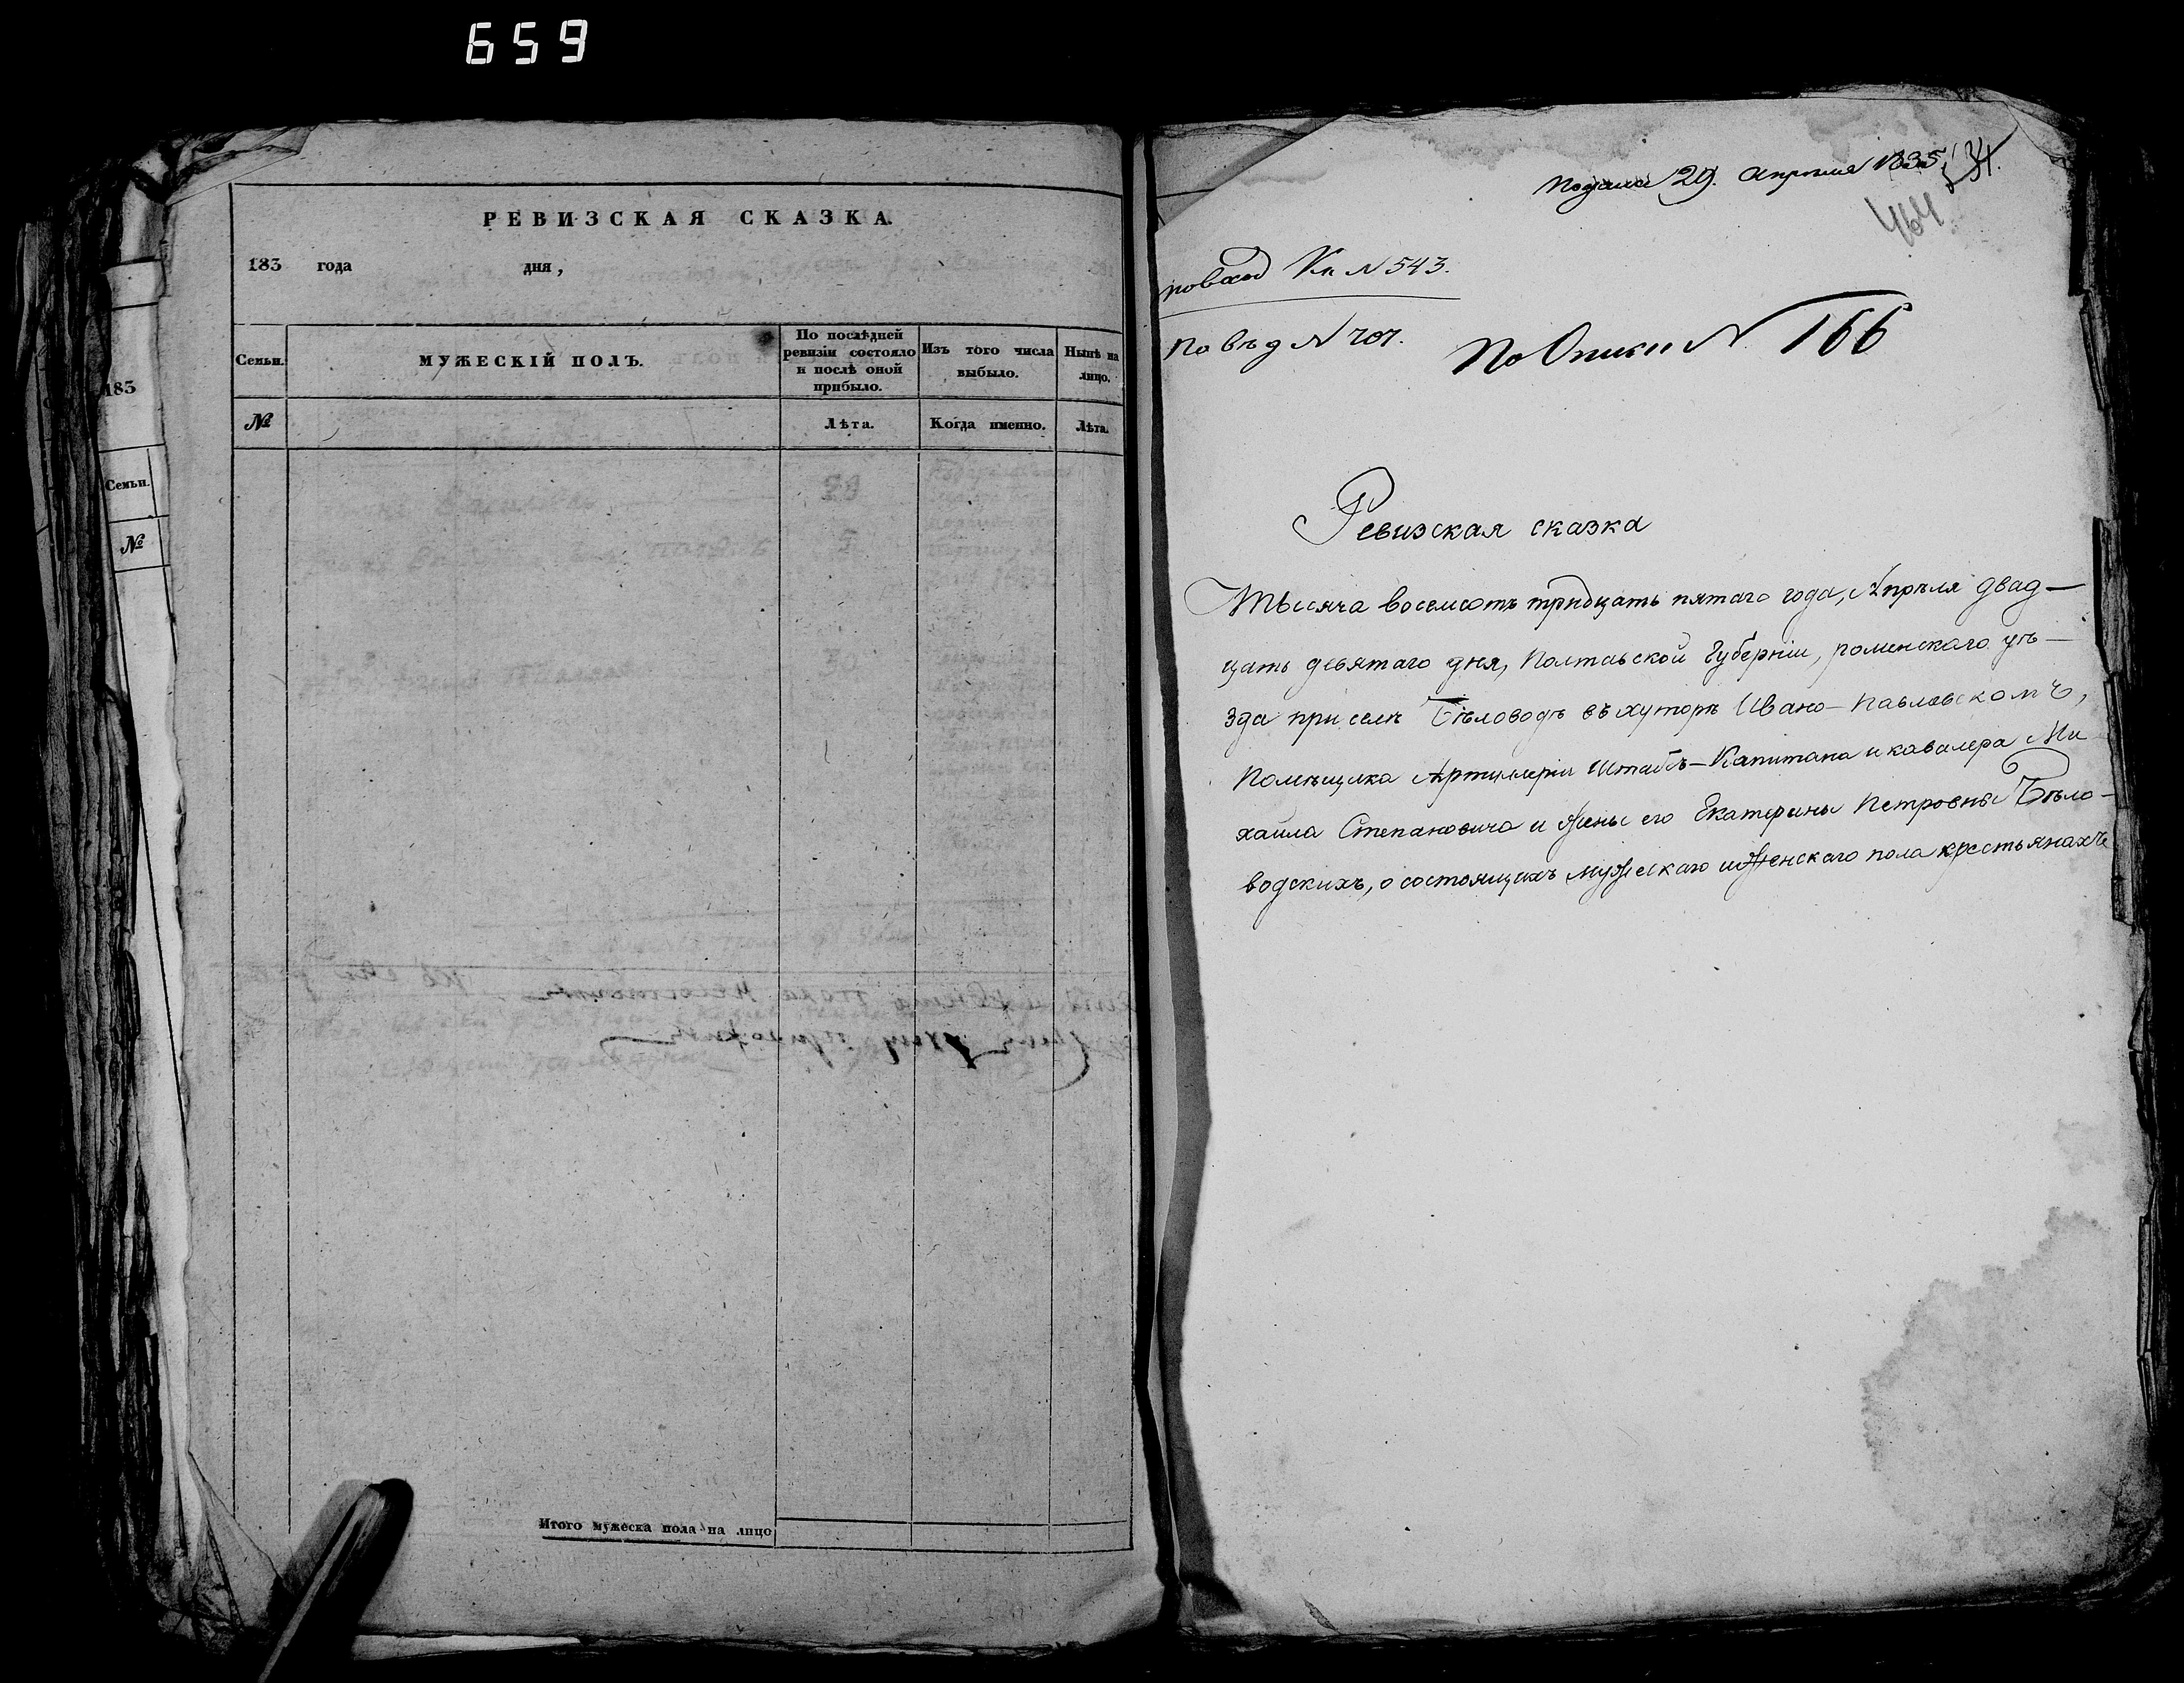 659
РЕВИЗСКАЯ СКАЗКА.
183 года дня,
Семьи.
МУЖЕСКІЙ ПОЛЪ.
По послѣдней ревизіи состояло и послѣ оной прибыло.
Изъ того числа выбыло.
Нынѣ на лицо.
№
Лѣта.
Когда именно.
Лѣта.
Итого мужеска пола на лицо
183
Семьи.
№
Подана 29. апреля 1835
464
по вход Кн N 543.
По вѣд N 707.
По Описи N 166
Ревизская сказка
Тысяча восемсотъ тридцать пятаго года, Апрѣля двад-
цать девятаго дня, Полтавской Губерніи, роменского уѣ-
зда при селѣ Бѣловодѣ въ хуторѣ Ивано-Павловскомъ,
Помѣщика Артиллеріи Штабсъ-Капитана и кавалера Ми
хаила Степановича и Жены его Екатерины Петровны Бѣло-
водскихъ, о состоящихъ мужескаго и женскаго пола крестьянахъ